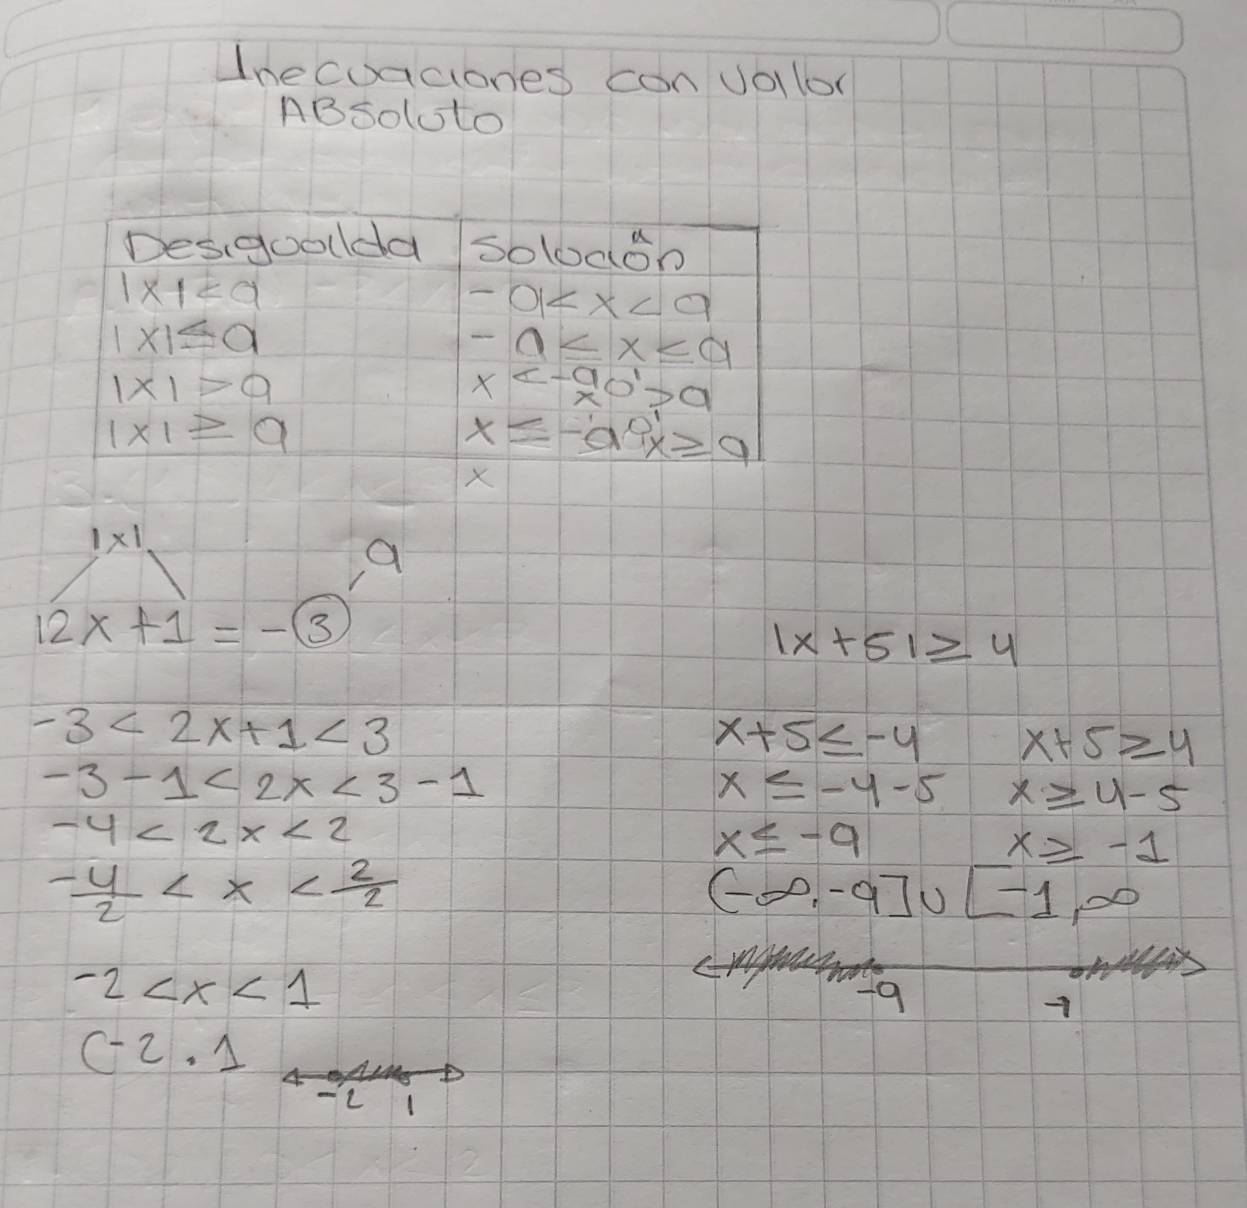 Inecuaciones con valor
ABSoluto
Desigualda Solución
|x|<a -a<x<a
|x|≤a -a≤x≤a
|x|>a x<-a o x>a
|x|≥a x≤-a o x≥a
x
|x|
a
|2x+1 = -3
-3<2x+1<3
-3-1<2x<3-1
-4<2x<2
-4/2 < x < 2/2
-2<x<1
(-2.1
-2 1
|x+5|≥4
x+5≤-4 x+5≥4
x≤-4-5 x≥4-5
x≤-9 x≥-1
(-∞,-9]∪[-1,∞
-9 -1